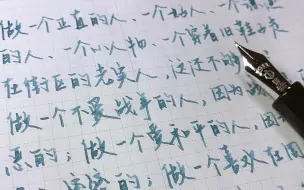 做一个正直的人、一个好人、一个
的人、一个小人物、一个穿着旧鞋子走
在街区的老实人，这还不够
做一个不爱战争的人，因为战
恶的；做一个爱和平的人，因
的；做一个喜欢在